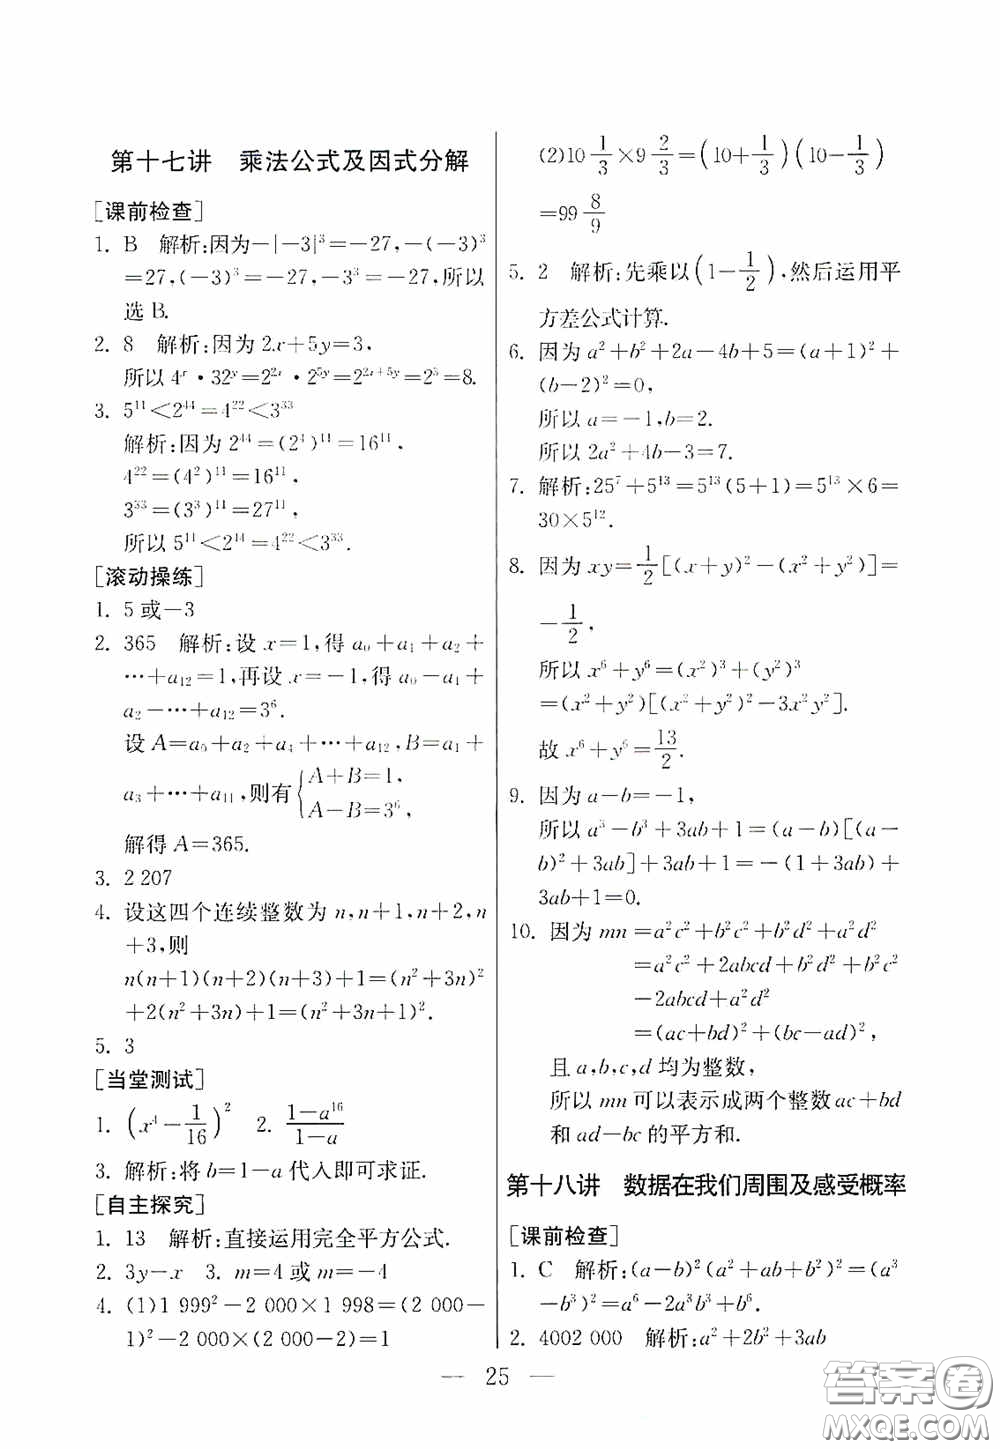 第十七讲　乘法公式及因式分解
[课前检查]
1. B　解析:因为－|－3|³＝－27,－(－3)³
＝27,(－3)³＝－27,－3³＝－27,所以
选B.
2. 8　解析:因为2x＋5y＝3,
所以4ˣ·32ʸ＝2^{2x}·2^{5y}＝2^{2x＋5y}＝2³＝8.
3. 5¹¹＜2⁴⁴＝4²²＜3³³
解析:因为2⁴⁴＝(2⁴)¹¹＝16¹¹,
4²²＝(4²)¹¹＝16¹¹,
3³³＝(3³)¹¹＝27¹¹,
所以5¹¹＜2⁴⁴＝4²²＜3³³.
[滚动操练]
1. 5或－3
2. 365　解析:设x＝1,得a₀＋a₁＋a₂＋
…＋a₁₂＝1,再设x＝－1,得a₀－a₁＋
a₂－…＋a₁₂＝3⁶.
设A＝a₀＋a₂＋a₄＋…＋a₁₂,B＝a₁＋
a₃＋…＋a₁₁,则有{A＋B＝1, A－B＝3⁶,
解得A＝365.
3. 2 207
4. 设这四个连续整数为n,n＋1,n＋2,n
＋3,则
n(n＋1)(n＋2)(n＋3)＋1＝(n²＋3n)²
＋2(n²＋3n)＋1＝(n²＋3n＋1)².
5. 3
[当堂测试]
1. (x⁴－1/16)²　2. (1－a¹⁶)/(1－a)
3. 解析:将b＝1－a代入即可求证.
[自主探究]
1. 13　解析:直接运用完全平方公式.
2. 3y－x　3. m＝4或m＝－4
4. (1)1 999²－2 000×1 998＝(2 000－
1)²－2 000×(2 000－2)＝1
(2)10 1/3×9 2/3＝(10＋1/3)(10－1/3)
＝99 8/9
5. 2　解析:先乘以(1－1/2),然后运用平
方差公式计算.
6. 因为a²＋b²＋2a－4b＋5＝(a＋1)²＋
(b－2)²＝0,
所以a＝－1,b＝2.
所以2a²＋4b－3＝7.
7. 解析:25⁷＋5¹³＝5¹³(5＋1)＝5¹³×6＝
30×5¹².
8. 因为xy＝1/2[(x＋y)²－(x²＋y²)]＝
－1/2,
所以x⁶＋y⁶＝(x²)³＋(y²)³
＝(x²＋y²)[(x²＋y²)²－3x²y²].
故x⁶＋y⁶＝13/2.
9. 因为a－b＝－1,
所以a³－b³＋3ab＋1＝(a－b)[(a－
b)²＋3ab]＋3ab＋1＝－(1＋3ab)＋
3ab＋1＝0.
10. 因为mn＝a²c²＋b²c²＋b²d²＋a²d²
＝a²c²＋2abcd＋b²d²＋b²c²
－2abcd＋a²d²
＝(ac＋bd)²＋(bc－ad)²,
且a,b,c,d均为整数,
所以mn可以表示成两个整数ac＋bd
和ad－bc的平方和.
第十八讲　数据在我们周围及感受概率
[课前检查]
1. C　解析:(a－b)²(a²＋ab＋b²)²＝(a³
－b³)²＝a⁶－2a³b³＋b⁶.
2. 4002 000　解析:a²＋2b²＋3ab
— 25 —
答案圈
MXQE.COM